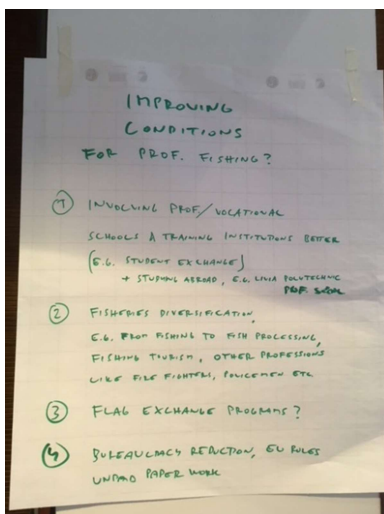 IMPROVING
CONDITIONS
FOR PROF. FISHING?
① INVOLVING PROF/VOCATIONAL
SCHOOLS & TRAINING INSTITUTIONS BETTER
(E.G. STUDENT EXCHANGE)
+ STUDYING ABROAD, E.G. LIVIA POLYTECHNIC
PROF.
② FISHERIES DIVERSIFICATION,
E.G. FROM FISHING TO FISH PROCESSING,
FISHING TOURISM, OTHER PROFESSIONS
LIKE FIRE FIGHTERS, POLICEMEN ETC
③ FLAG EXCHANGE PROGRAMS?
④ BUREAUCRACY REDUCTION, EU RULES
UNPAID PAPER WORK